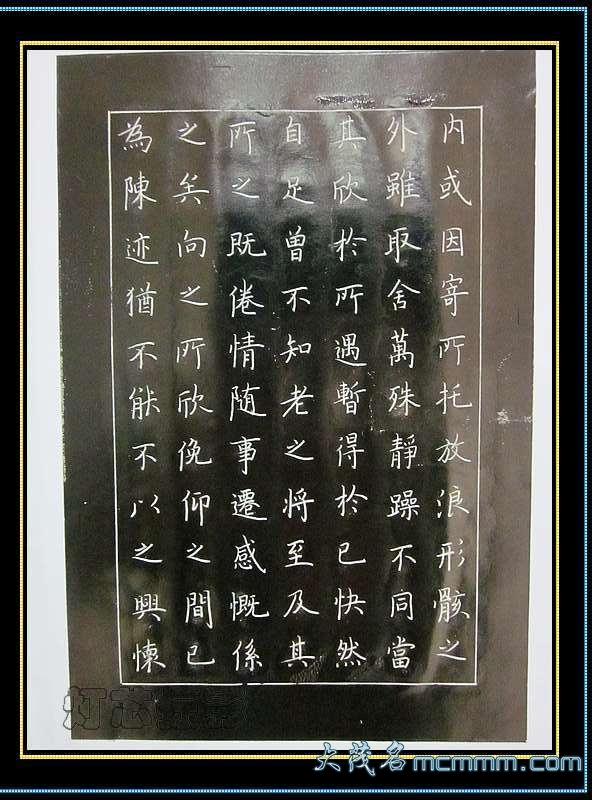 内或因寄所托放浪形骸之
外雖取舍萬殊靜躁不同當
其欣於所遇暫得於己快然
自足曾不知老之将至及其
所之既倦情随事遷感慨係
之矣向之所欣俛仰之間已
為陳迹猶不能不以之興懐
灯芯
大茂名mcmmm.com